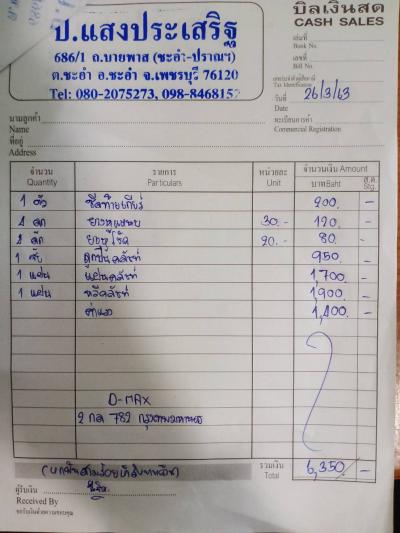 ป.แสงประเสริฐ
686/1 ถ.บายพาส (ชะอำ-ปราณฯ)
ต.ชะอำ อ.ชะอำ จ.เพชรบุรี 76120
Tel: 080-2075273, 098-8468152
บิลเงินสด
CASH SALES
เล่มที่
Book No.
เลขที่
Bill No.
เลขประจำตัวผู้เสียภาษี
Tax Identification
วันที่ 26/3/63
Date
นามลูกค้า
Name
ทะเบียนการค้า
Commercial Registration
ที่อยู่
Address
จำนวน รายการ หน่วยละ จำนวนเงิน Amount
Quantity Particulars Unit บาทBaht ส.ต. Stg.
1 ตัว ซีลท้ายเกียร์ 200. -
4 ลูก 30.- 120 -
2 ลูก 20.- 80. -
1 ลูกปืนคลัทช์ 950. -
1 แผ่น แผ่นคลัทช์ 1,700 -
1 แผ่น หวีคลัทช์ 1,900 -
ค่าแรง 1,400. -
D-MAX
2 กล 782 กรุงเทพมหานคร
(หกพันสามร้อยห้าสิบบาทถ้วน) รวมเงิน 6,350 -
Total
ผู้รับเงิน
Received By
ขอรับเงินด้วยความขอบคุณ